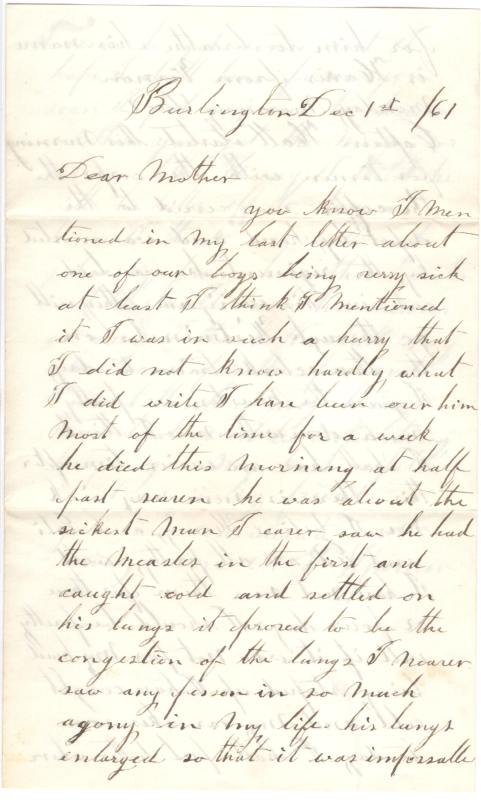 Burlington Dec 1st /61
Dear Mother
you know I men
tioned in my last letter about
one of our boys being verry sick
at least I think I mentioned
it I was in such a hurry that
I did not know hardly what
I did write I have been over him
most of the time for a week
he died this morning at half
past seaven he was about the
sickest man I eaver saw he had
the measles in the first and
caught cold and settled on
his lungs it proved to be the
congestion of the lungs I neaver
saw any person in so much
agony in my life his lungs
enlarged so that it was impossable